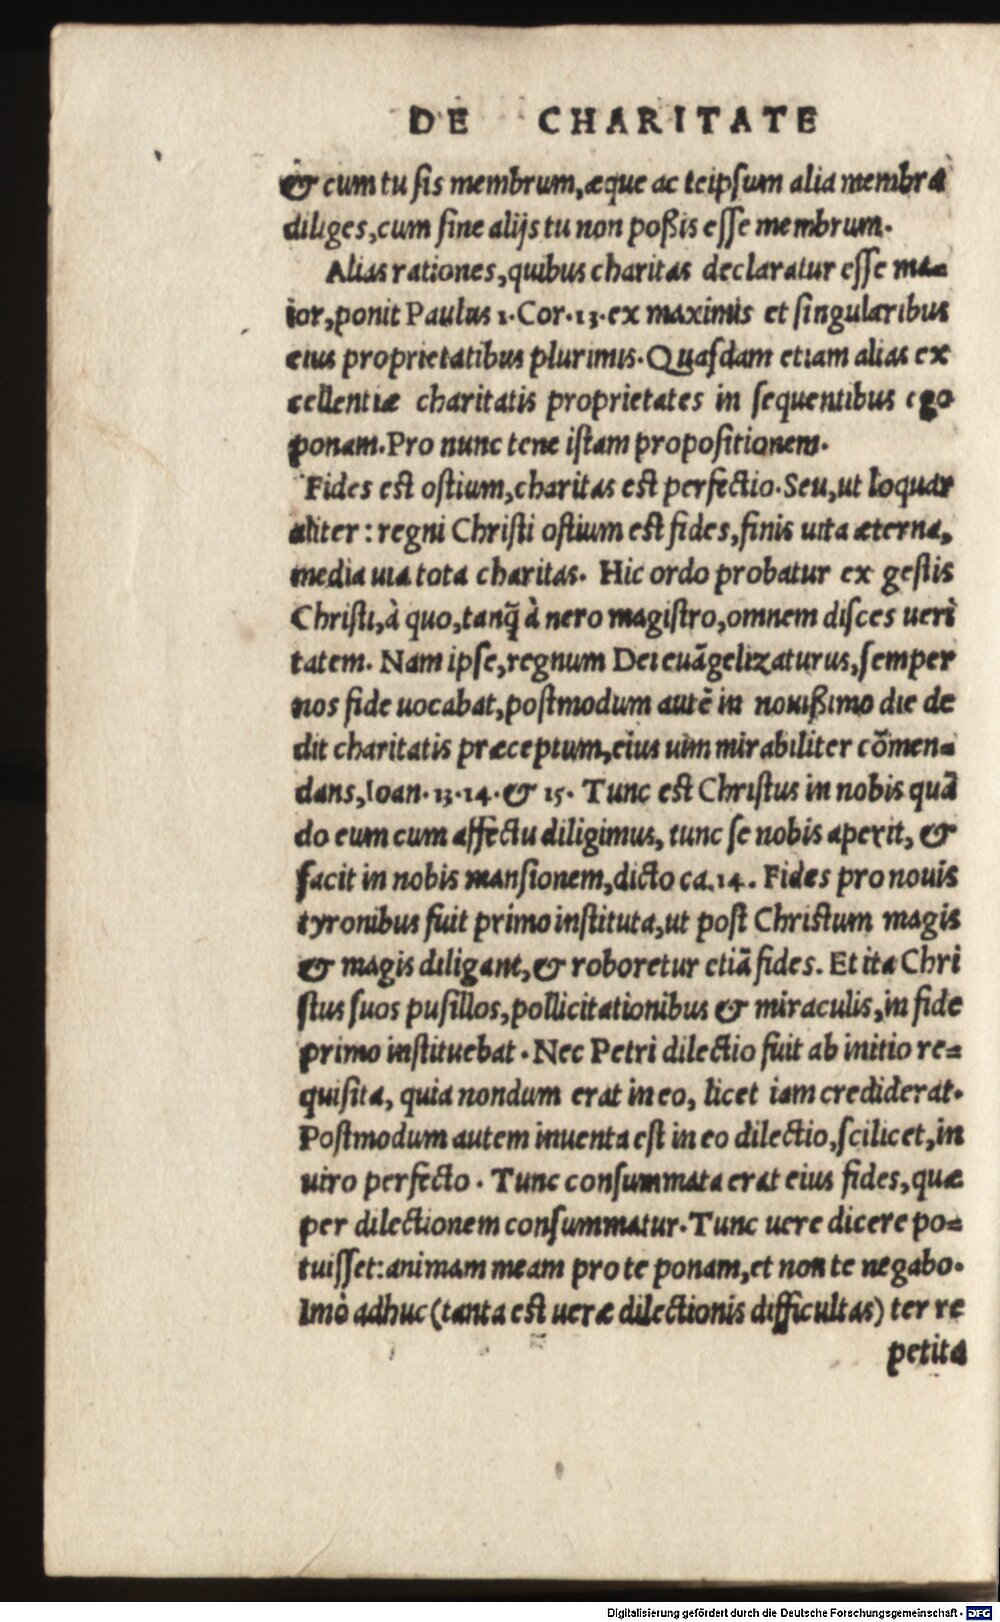 DE CHARITATE
& cum tu sis membrum, æque ac teipsum alia membra
diliges, cum sine alijs tu non poßis esse membrum.
Alias rationes, quibus charitas declaratur esse ma-
ior, ponit Paulus 1. Cor. 13. ex maximis et singularibus
eius proprietatibus plurimis. Quasdam etiam alias ex
cellentiæ charitatis proprietates in sequentibus ego
ponam. Pro nunc tene istam propositionem.
Fides est ostium, charitas est perfectio. Seu, ut loquar
aliter: regni Christi ostium est fides, finis uita æterna,
media uia tota charitas. Hic ordo probatur ex gestis
Christi, à quo, tanq̃ à nero magistro, omnem disces ueri
tatem. Nam ipse, regnum Dei euãgelizaturus, semper
nos fide uocabat, postmodum autẽ in nouißimo die de
dit charitatis præceptum, eius uim mirabiliter cõmen-
dans, Ioan. 13. 14. & 15. Tunc est Christus in nobis quã
do eum cum affectu diligimus, tunc se nobis aperit, &
facit in nobis mansionem, dicto ca. 14. Fides pro nouis
tyronibus fuit primo instituta, ut post Christum magis
& magis diligant, & roboretur etiã fides. Et ita Chri
stus suos pusillos, pollicitationibus & miraculis, in fide
primo instituebat. Nec Petri dilectio fuit ab initio re-
quisita, quia nondum erat in eo, licet iam crediderat.
Postmodum autem inuenta est in eo dilectio, scilicet, in
uiro perfecto. Tunc consummata erat eius fides, quæ
per dilectionem consummatur. Tunc uere dicere po-
tuisset: animam meam pro te ponam, et non te negabo.
Imò adhuc (tanta est ueræ dilectionis difficultas) ter re
petita
Digitalisierung gefördert durch die Deutsche Forschungsgemeinschaft - DFG